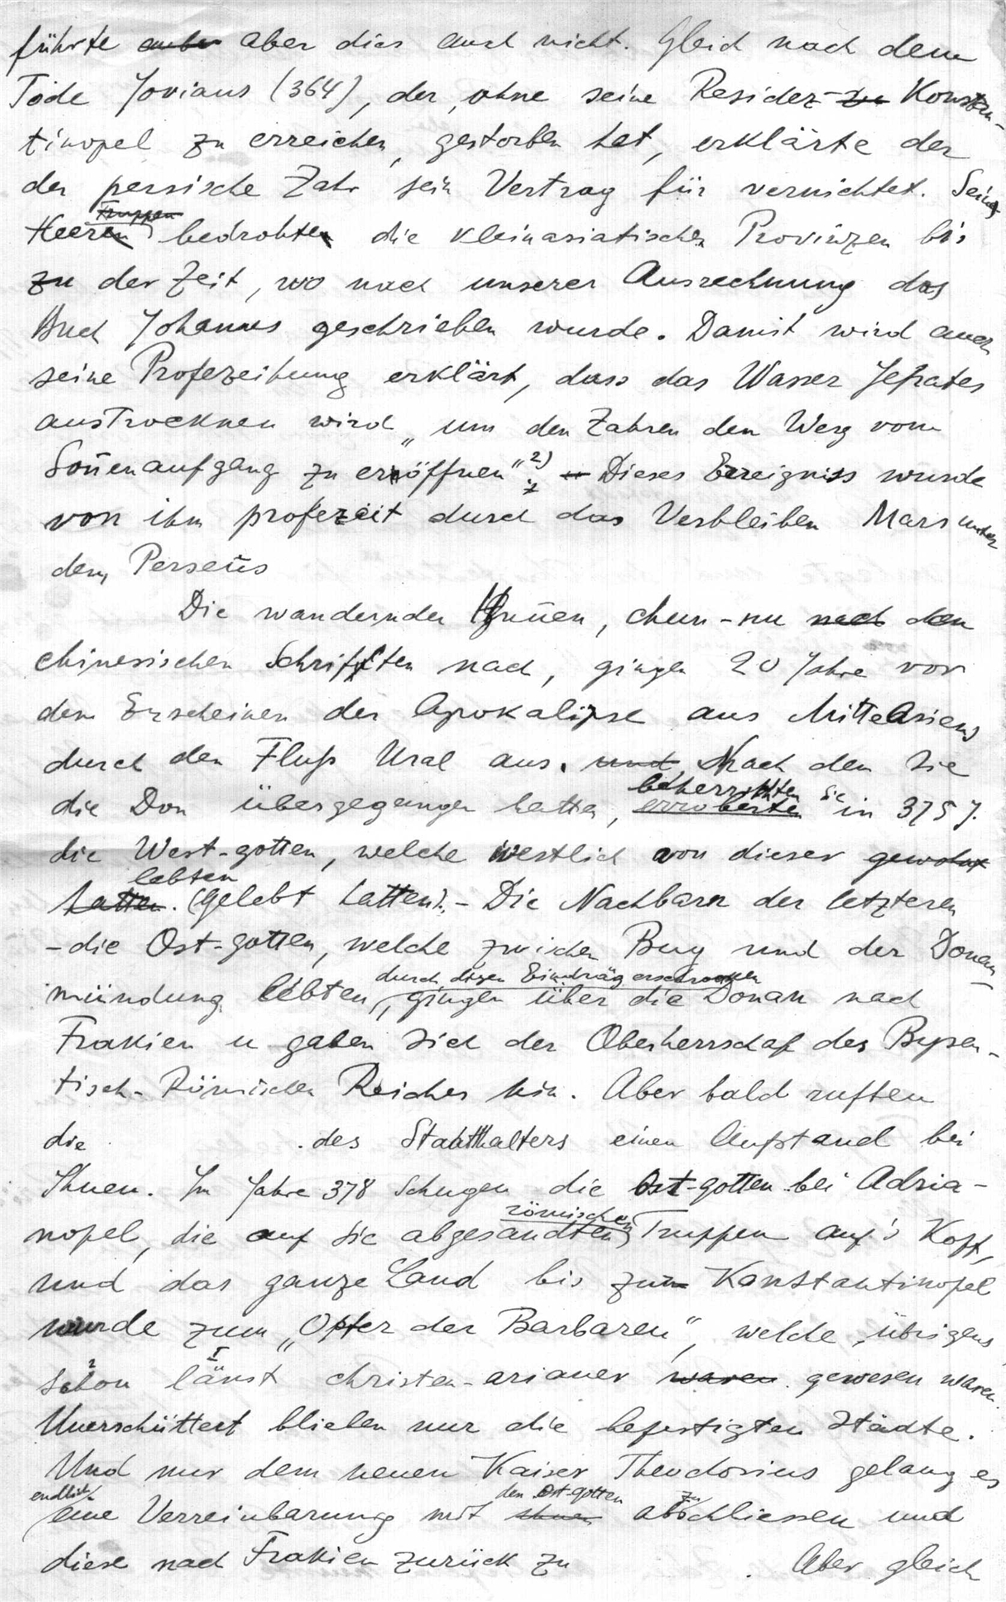 führte aber dies auch nicht. Gleich nach dem
Tode Jovians (364), der, ohne seine Residez Konstan-
tinopel zu erreichen, gestorben hat, erklärte der
der persische Zahr sein Vertrag für vernichtet. Seine
Truppen
Heeren bedrohten die kleinasiatischen Provinzen bis
zu der Zeit, wo nach unserer Ausrechnung das
Buch Johannes geschrieben wurde. Damit wird auch
seine Profezeihung erklärt, dass das Wasser Jefrates
austrocknen wird „um den Zahren den Weg vom
Soñenaufgang zu eröffnen“ 2) Dieses Ereigniss wurde
von ihm profezeit durch das Verbleiben Mars unter
dem Perseus
Die wandernden Hunnen, chun-nu nach den
chinesischen Schriften nach, gingen 20 Jahre vor
dem Erscheinen der Apokalipse aus Mittelasiens
durch den Fluß Ural aus. und Nach dem Sie
beherrschten Sie
die Don übergegangen hatten, erroberte in 375 J.
die West-gotten, welche westlich von dieser gewohnt
lebten
hatten. (gelebt hatten). - Die Nachbarn der letzteren
- die Ost-gotten, welche zwischen Bug und der Donau
durch diesen Eindrag erschrocken
mündung lebten, gingen über die Donau nach
Frakien u gaben sich der Oberherrschaf des Bysen-
tisch-Römischen Reiches hin. Aber bald ruften
die des Stahthalters einen Aufstand bei
Ihnen. Im Jahre 378 schugen die Ost-gotten bei Adria-
römischen
nopel, die auf Sie abgesandten Truppen auf's Kopf,
und das ganze Land bis zum Konstantinopel
wurde zum „Opfer der Barbaren“, welche übrigens
2 1
schon länst christen-arianer waren gewesen waren.
Unerschüttert blieben nur die befestigten Städte.
Und nur dem neuen Kaiser Theodosius gelang es
endlich den Ost-gotten zu
eine Verreinbarung mit ihnen abschliessen und
diese nach Frakien zurück zu . Aber gleich